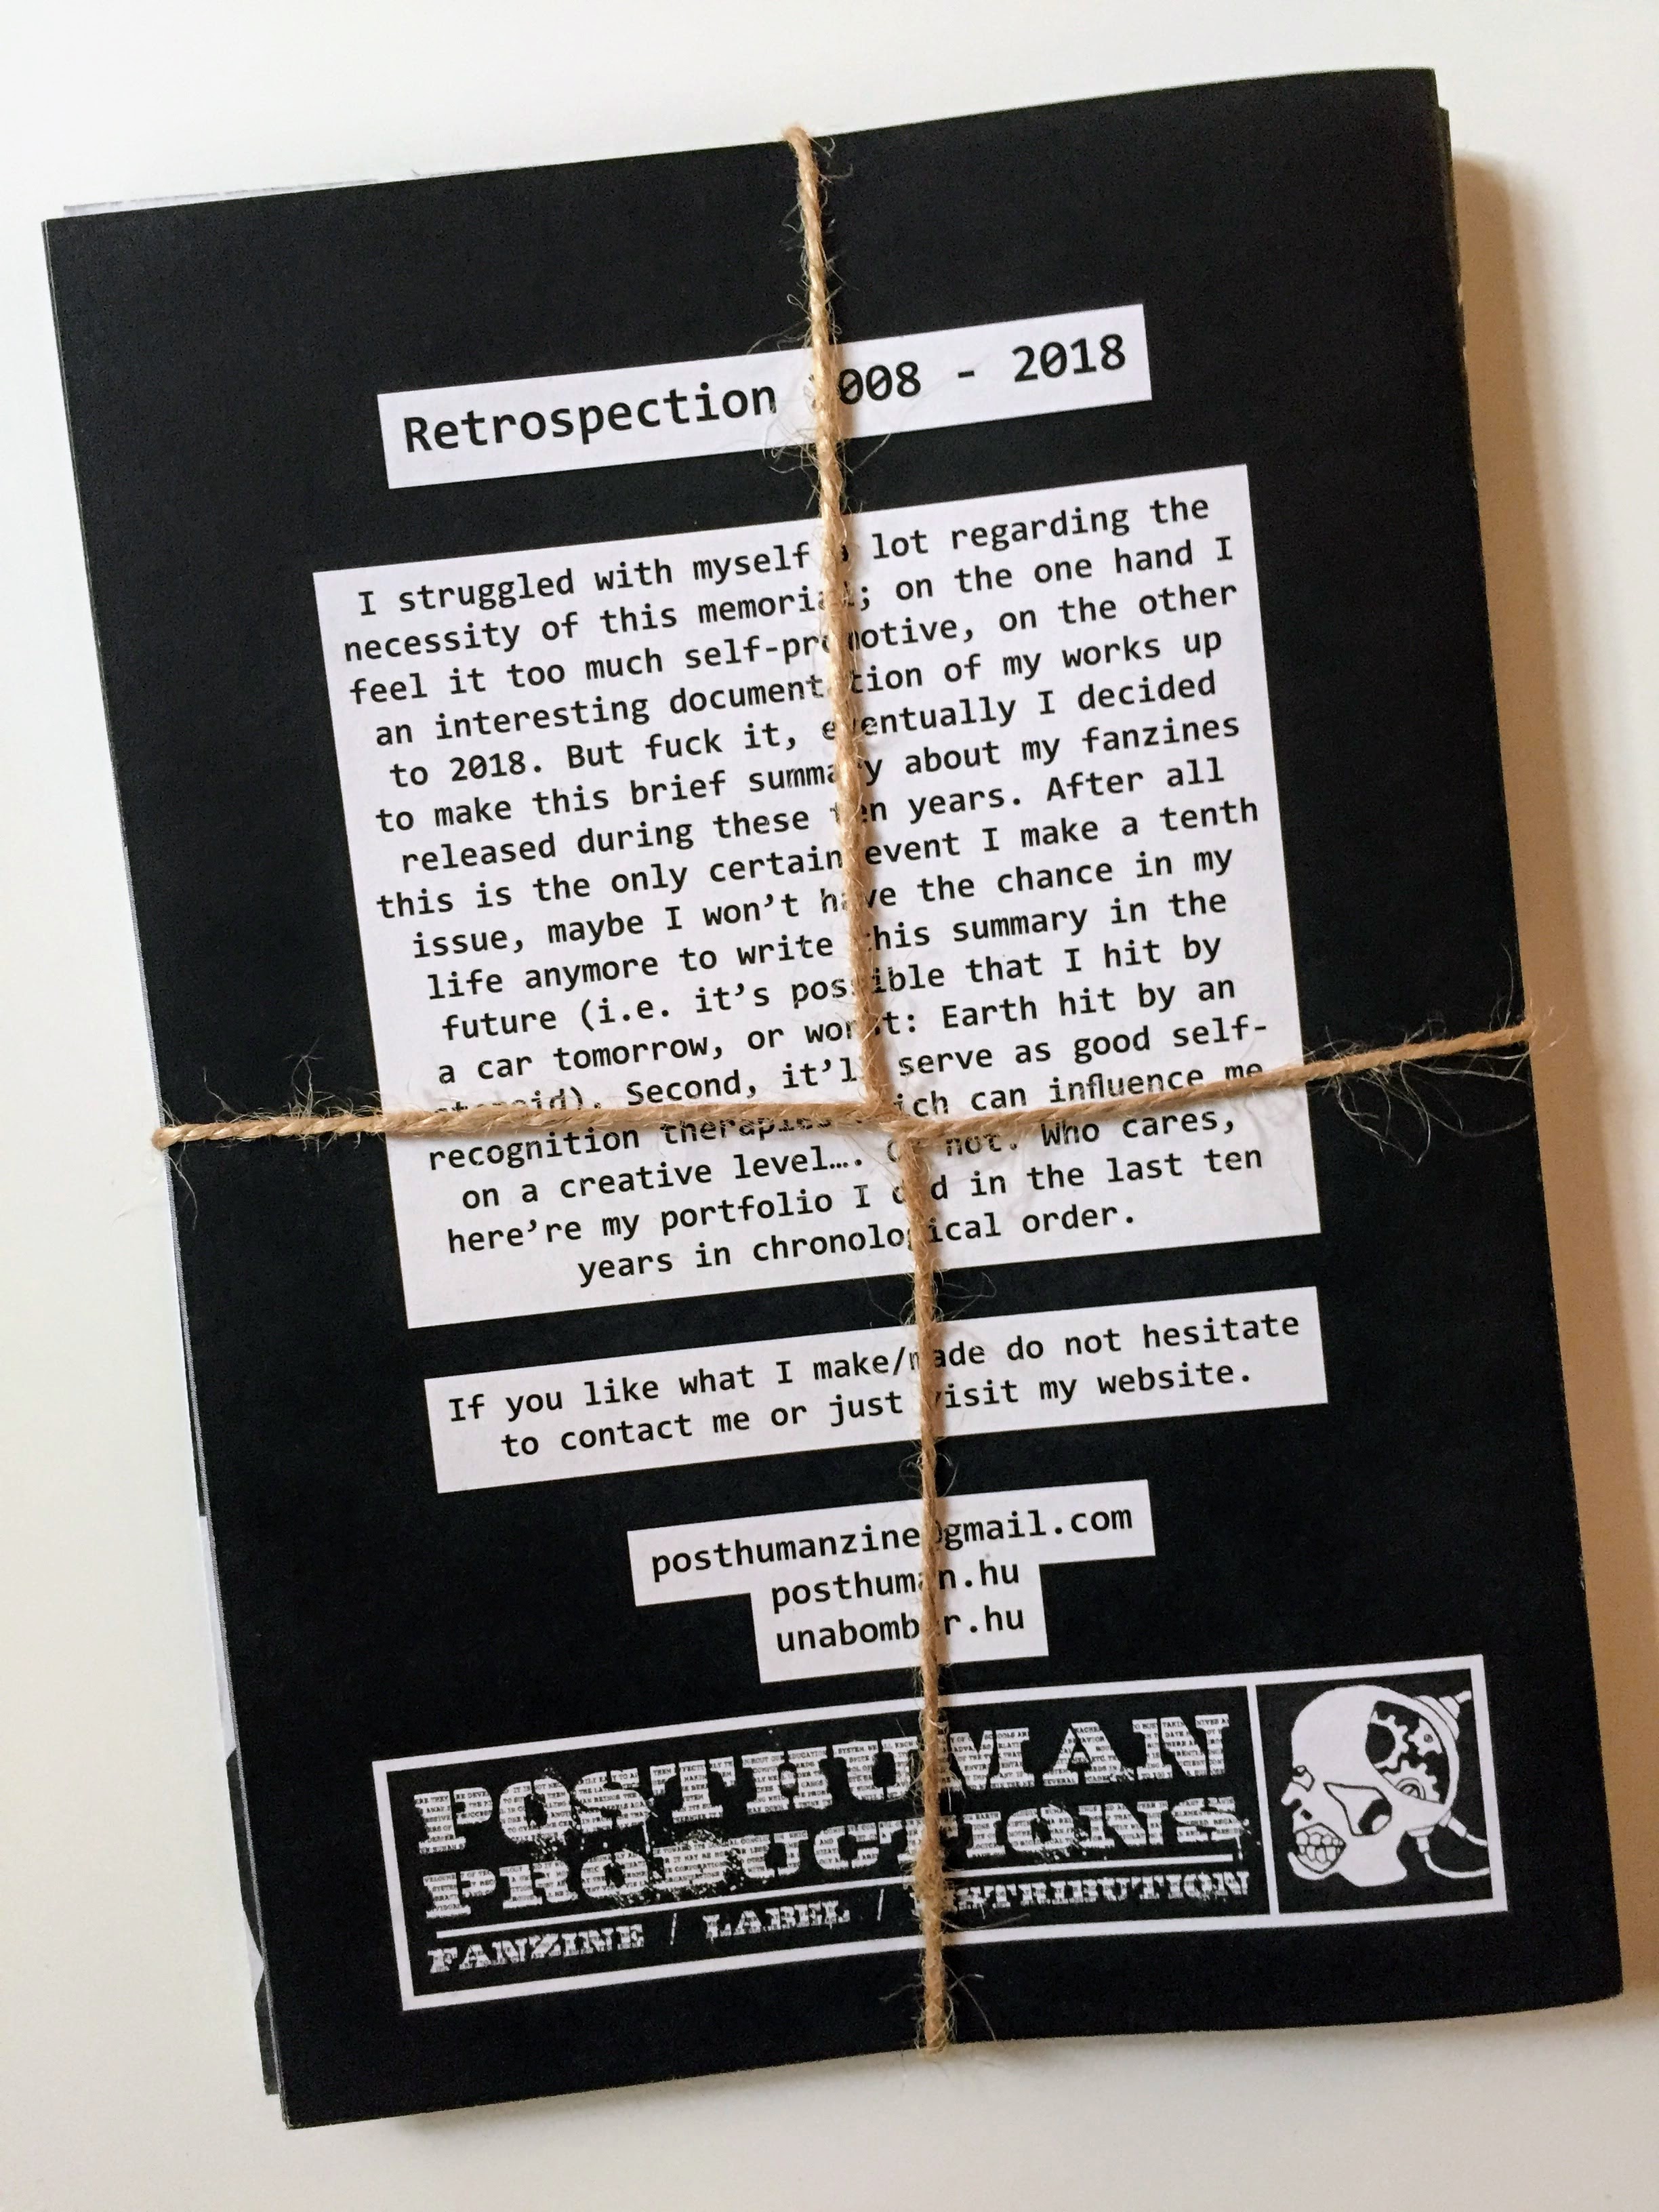 Retrospection 2008 - 2018
I struggled with myself a lot regarding the
necessity of this memorial; on the one hand I
feel it too much self-promotive, on the other
an interesting documentation of my works up
to 2018. But fuck it, eventually I decided
to make this brief summary about my fanzines
released during these ten years. After all
this is the only certain event I make a tenth
issue, maybe I won’t have the chance in my
life anymore to write this summary in the
future (i.e. it’s possible that I hit by
a car tomorrow, or worst: Earth hit by an
steroid). Second, it’ll serve as good self-
recognition therapies which can influence me
on a creative level…. Or not. Who cares,
here’re my portfolio I did in the last ten
years in chronological order.
If you like what I make/made do not hesitate
to contact me or just visit my website.
posthumanzine@gmail.com
posthuman.hu
unabomber.hu
POSTHUMAN
PRODUCTIONS
FANZINE / LABEL / DISTRIBUTION